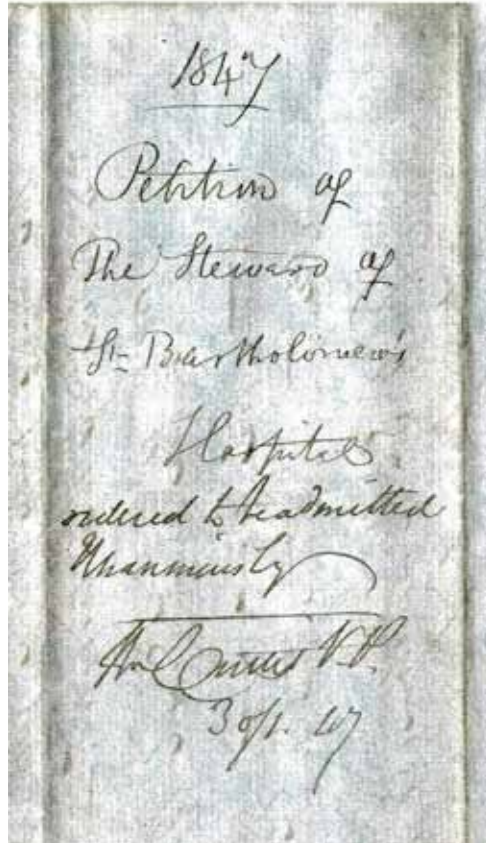 1847
Petition of
The Steward of
St Bartholomew's
Hospital
ordered to be admitted
Unanimously
Wm Curtis V.P.
47